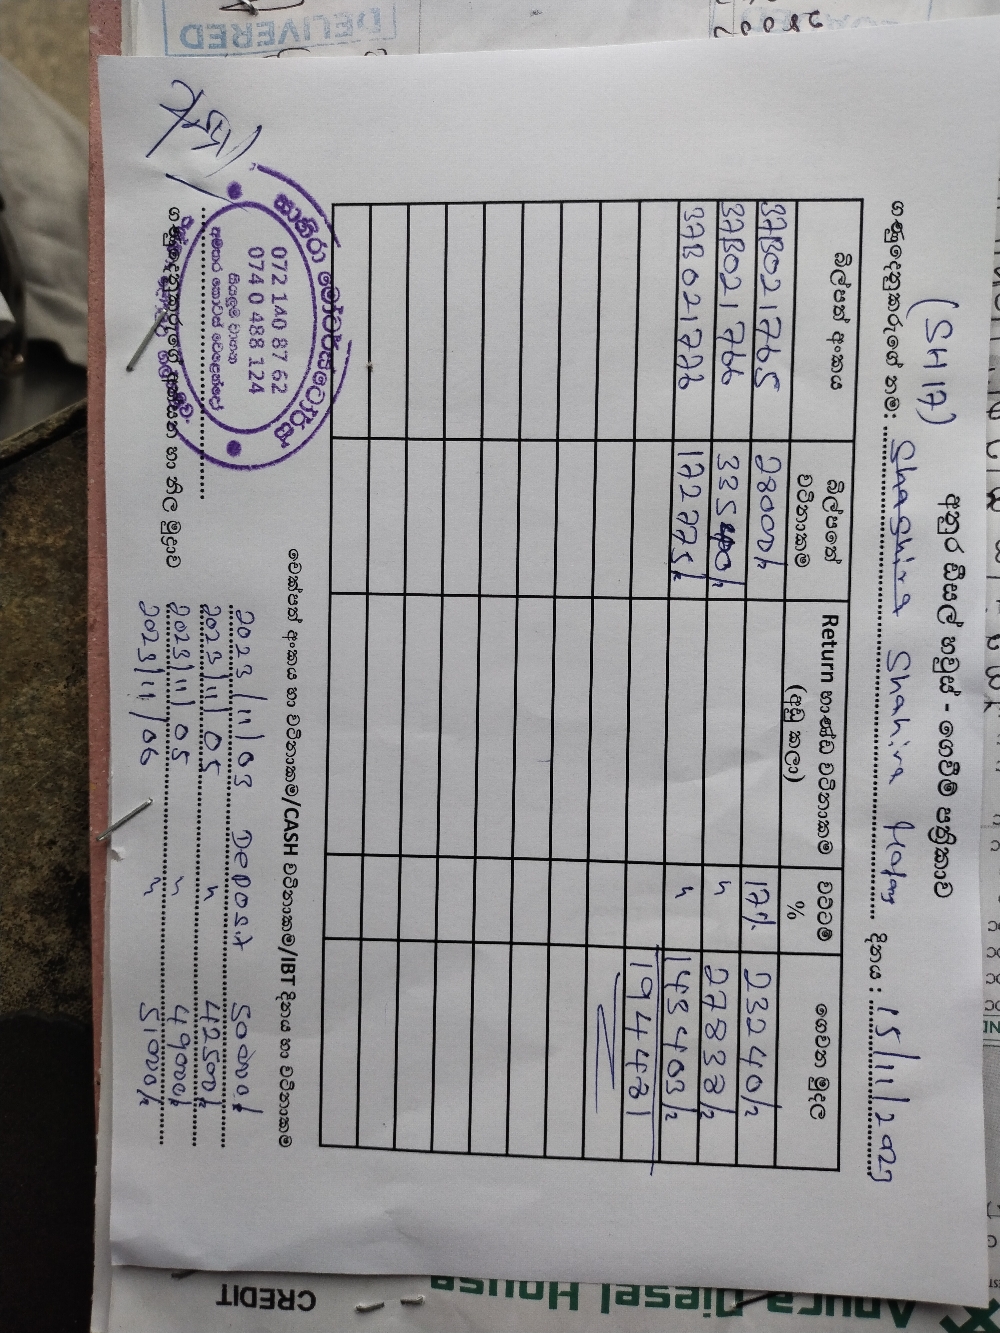 DELIVERED
අනුර ඩීසල් හවුස් - ගෙවීම් පත්‍රිකාව
(SH17)
ගණුදෙනුකරුගේ නම: Shaghira Shahira දිනය : 15/11/202
බිල්පත් අංකය බිල්පතේ වටිනාකම Return භාණ්ඩ වටිනාකම (අඩු කලා) වට්ටම % ගෙවන මුදල
37B021765 28000/= 17% 23240/=
37B021766 33540/= " 27838/=
37B021776 172775/= " 143403/=
194481
චෙක්පත් අංකය හා වටිනාකම/CASH වටිනාකම/IBT දිනය හා වටිනාකම
2023/11/03 Deposit 50000/=
2023/11/05 " 42500/=
2023/11/05 " 49000/=
2023/11/06 " 51000/=
072 140 87 62
074 0 488 124
සියලුම වාහන
අමතර කොටස් වෙළෙන්දෝ
ගණුදෙනුකරුගේ අත්සන හා නිල මුද්‍රාව
Anura Diesel House
CREDIT